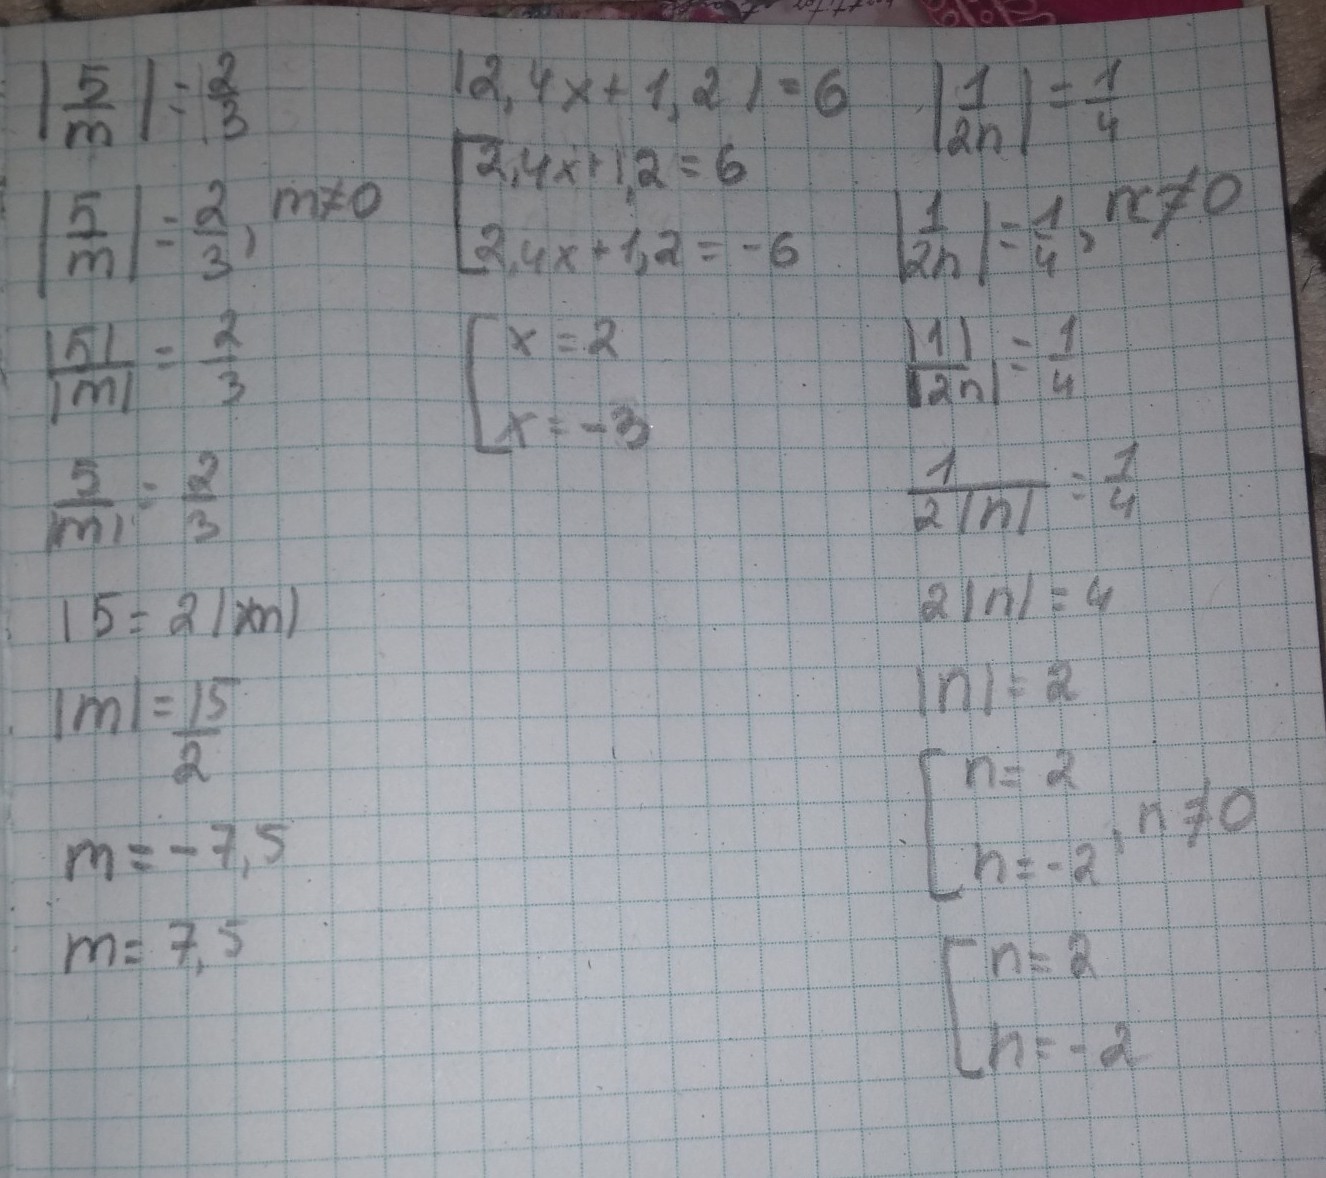 |5/m| = 2/3
|5/m| = 2/3, m≠0
|5|/|m| = 2/3
5/|m| = 2/3
15 = 2|xm|
|m| = 15/2
m = -7,5
m = 7,5
|2,4x+1,2| = 6
[2,4x+1,2 = 6
2,4x+1,2 = -6
[x = 2
x = -3
|1/2n| = 1/4
|1/2n| = 1/4, n≠0
|1|/|2n| = 1/4
1/2|n| = 1/4
2|n| = 4
|n| = 2
[n = 2
n = -2, n≠0
[n = 2
n = -2